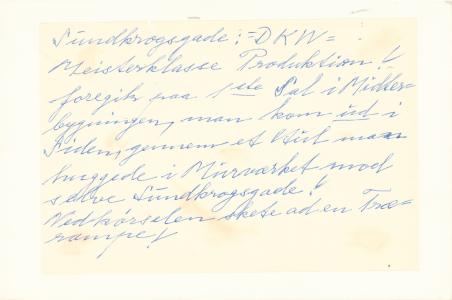 Sundkrogsgade: =DKW=
Meisterklasse Produktion!
foregik paa 1ste Sal i Midter=
bygningen, man kom ud i
Siden, gennem et Hul man
huggede i Murværket mod
selve Sundkrogsgade!
Nedkørselen skete ad en Træ=
rampe!